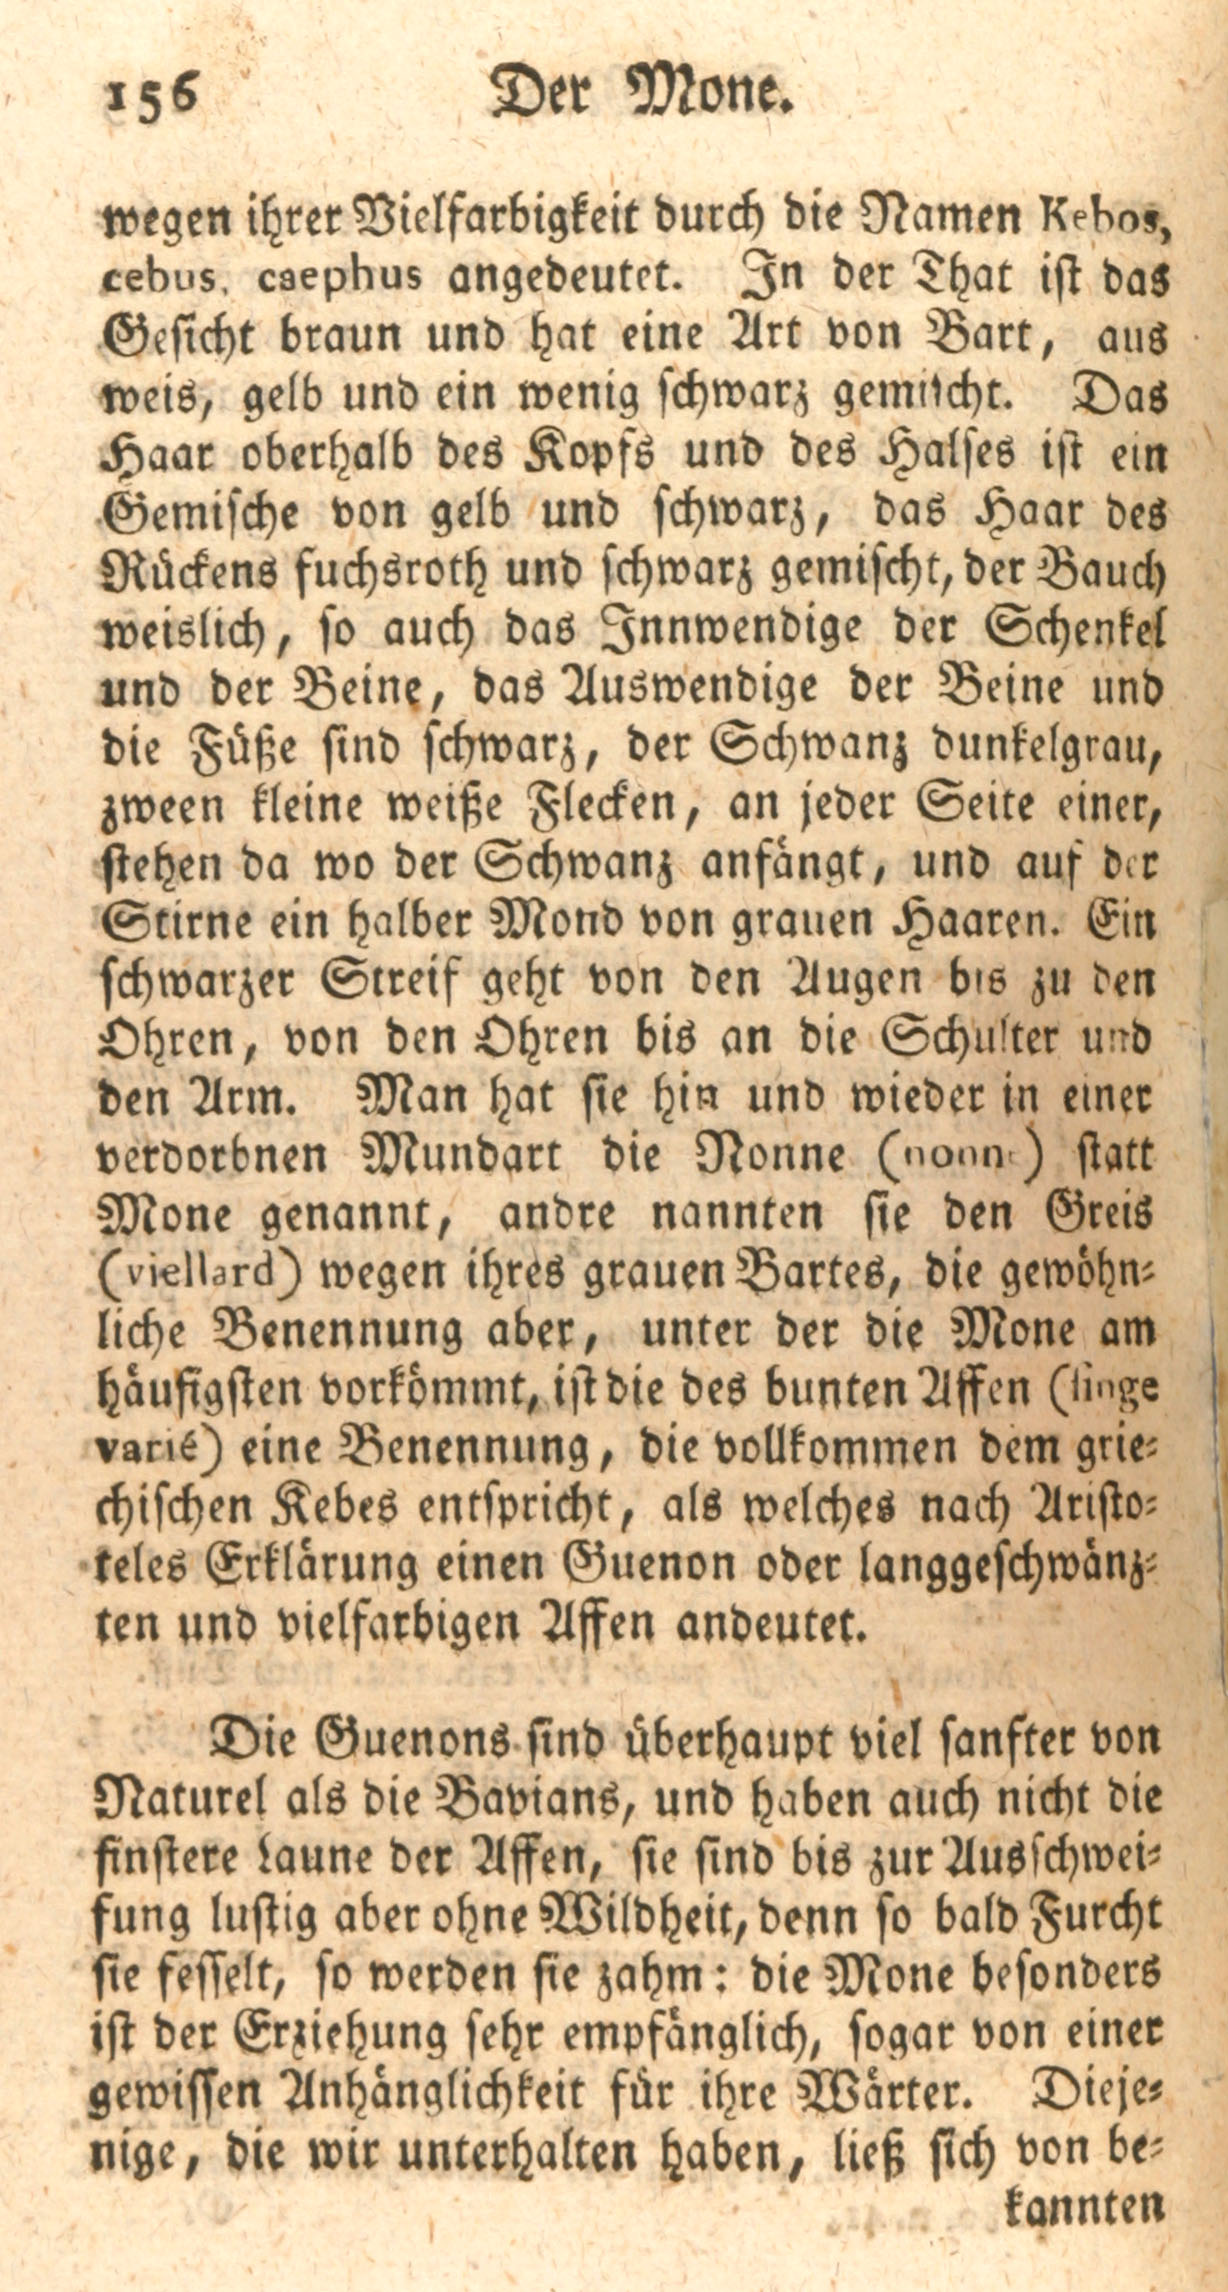 156 Der Mone.
wegen ihrer Vielfarbigkeit durch die Namen Kebos,
cebus, caephus angedeutet. In der That ist das
Gesicht braun und hat eine Art von Bart, aus
weis, gelb und ein wenig schwarz gemischt. Das
Haar oberhalb des Kopfs und des Halses ist ein
Gemische von gelb und schwarz, das Haar des
Rückens fuchsroth und schwarz gemischt, der Bauch
weislich, so auch das Innwendige der Schenkel
und der Beine, das Auswendige der Beine und
die Füße sind schwarz, der Schwanz dunkelgrau,
zween kleine weiße Flecken, an jeder Seite einer,
stehen da wo der Schwanz anfängt, und auf der
Stirne ein halber Mond von grauen Haaren. Ein
schwarzer Streif geht von den Augen bis zu den
Ohren, von den Ohren bis an die Schulter und
den Arm. Man hat sie hin und wieder in einer
verdorbnen Mundart die Nonne (nonne) statt
Mone genannt, andre nannten sie den Greis
(viellard) wegen ihres grauen Bartes, die gewöhn-
liche Benennung aber, unter der die Mone am
häufigsten vorkömmt, ist die des bunten Affen (singe
varié) eine Benennung, die vollkommen dem grie-
chischen Kebes entspricht, als welches nach Aristo-
teles Erklärung einen Guenon oder langgeschwänz-
ten und vielfarbigen Affen andeutet.
Die Guenons sind überhaupt viel sanfter von
Naturel als die Bavians, und haben auch nicht die
finstere Laune der Affen, sie sind bis zur Ausschwei-
fung lustig aber ohne Wildheit, denn so bald Furcht
sie fesselt, so werden sie zahm: die Mone besonders
ist der Erziehung sehr empfänglich, sogar von einer
gewissen Anhänglichkeit für ihre Wärter. Dieje-
nige, die wir unterhalten haben, ließ sich von be-
kannten